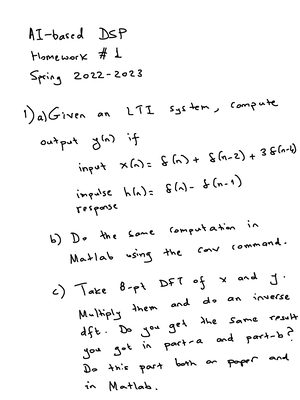 AI-based DSP
Homework #1
Spring 2022-2023
1) a) Given an LTI system, compute
output y(n) if
input x(n) = δ(n) + δ(n-2) + 3δ(n-6)
impulse h(n) = δ(n) - δ(n-1)
response
b) Do the same computation in
Matlab using the conv command.
c) Take 8-pt DFT of x and y.
Multiply them and do an inverse
dft. Do you get the same result
you got in part-a and part-b?
Do this part both on paper and
in Matlab.